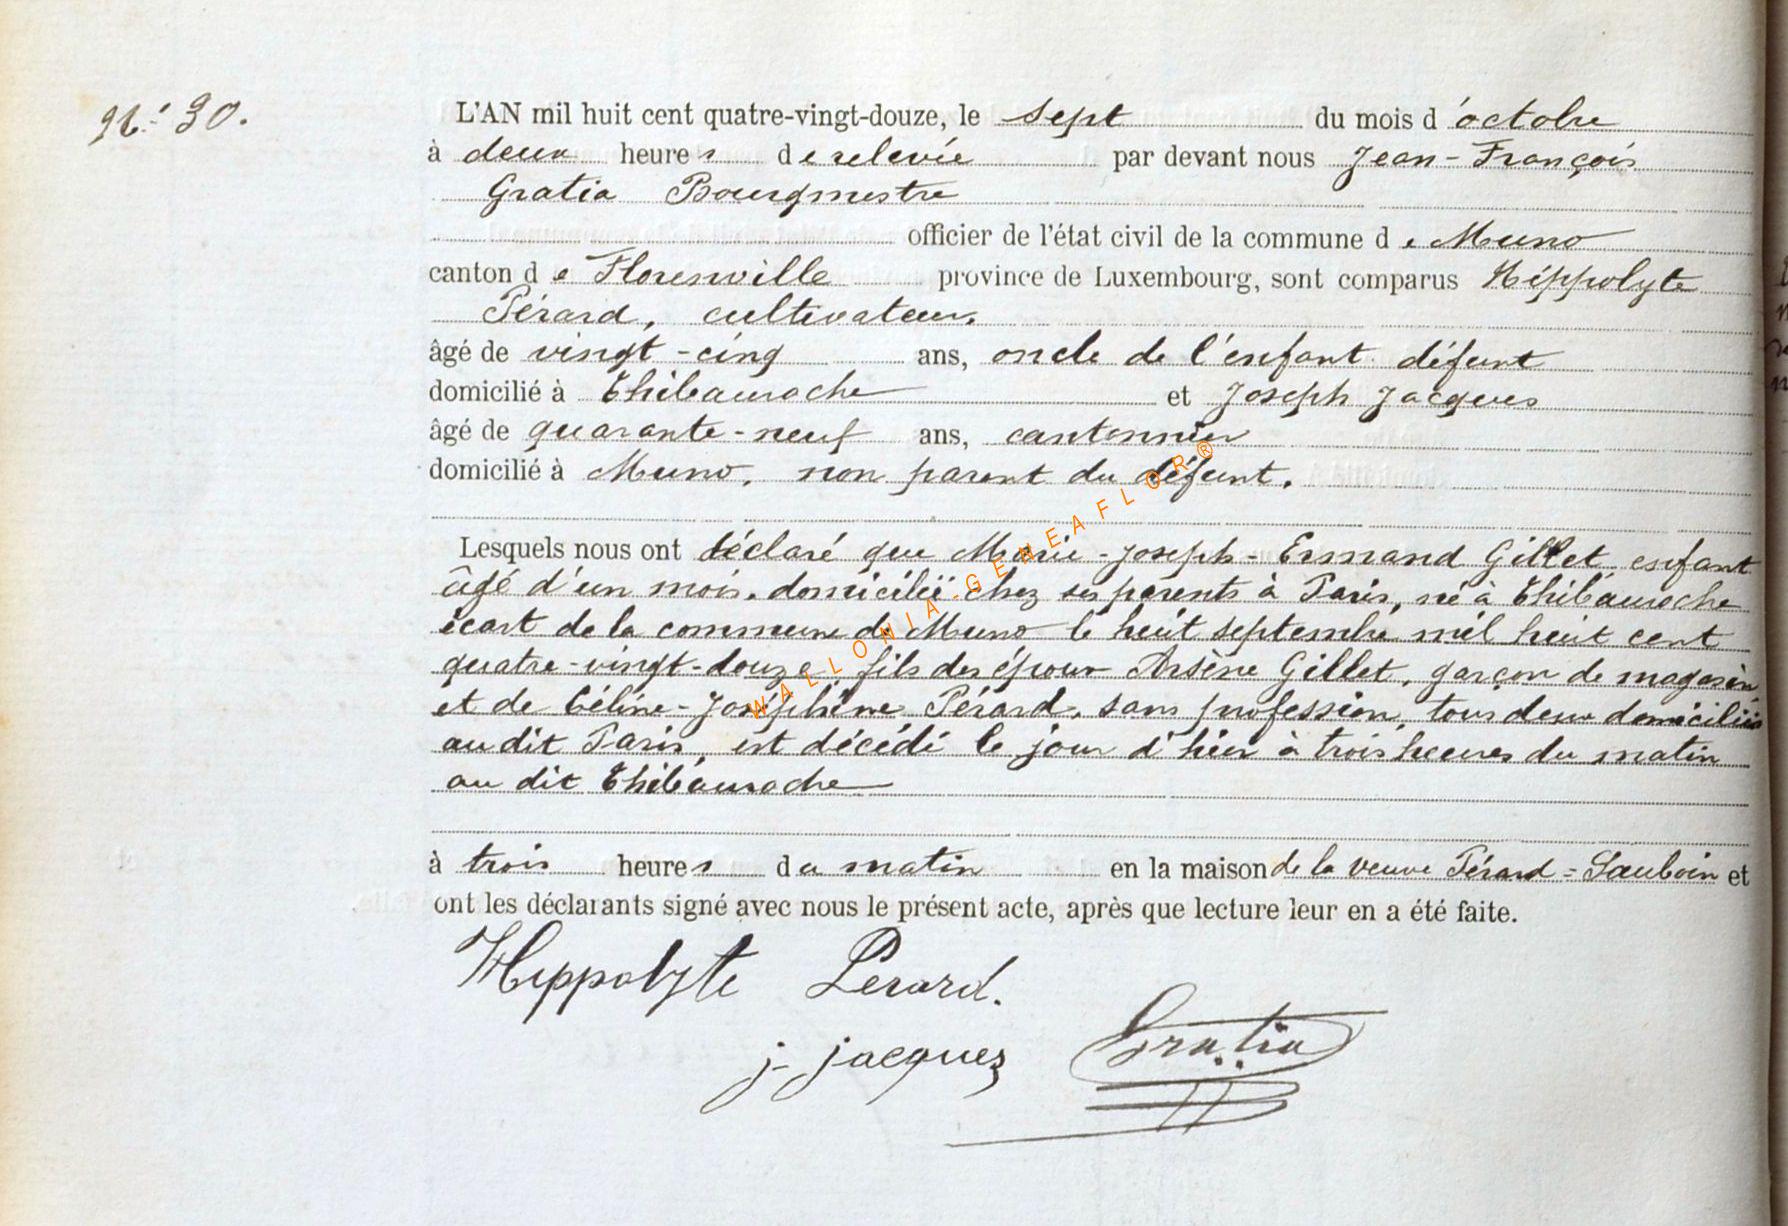 N.° 30.
L'AN mil huit cent quatre-vingt-douze, le sept du mois d'octobre
à deux heures de relevée par devant nous Jean-François
Gratia Bourgmestre
officier de l'état civil de la commune de Muno
canton de Florenville province de Luxembourg, sont comparus Hippolyte
Pérard, cultivateur,
âgé de vingt-cinq ans, oncle de l'enfant défunt
domicilié à Thibauroche et Joseph Jacques
âgé de quarante-neuf ans, cantonnier
domicilié à Muno, non parent du défunt.
Lesquels nous ont déclaré que Marie-Joseph-Ermand Gillet enfant
âgé d'un mois, domicilié chez ses parents à Paris, né à Thibauroche
écart de la commune de Muno le huit septembre mil huit cent
quatre-vingt-douze, fils des époux Arsène Gillet, garçon de magasin
et de Céline-Joséphine Pérard, sans profession, tous deux domiciliés
au dit Paris, est décédé le jour d'hier à trois heures du matin
au dit Thibauroche
à trois heures du matin en la maison de la veuve Pérard=Sauboin et
ont les déclarants signé avec nous le présent acte, après que lecture leur en a été faite.
Hippolyte Perard.
j. jacques Gratia
WALLONIA-GENEAFLOR®